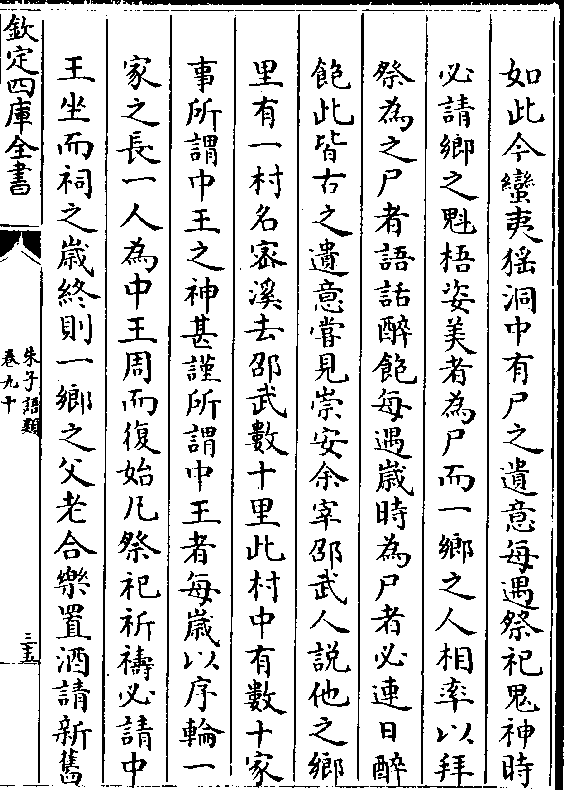 如此今蠻夷猺洞中有尸之遺意每遇祭祀鬼神時
必請鄉之魁梧姿美者為尸而一鄉之人相率以拜
祭為之尸者語話醉飽每遇歲時為尸者必連日醉
飽此皆古之遺意嘗見崇安余宰邵武人說他之鄉
里有一村名宻溪去邵武數十里此村中有數十家
事所謂中王之神甚謹所謂中王者每歲以序輪一
家之長一人為中王周而復始凡祭祀祈禱必請中
王坐而祠之歲終則一鄉之父老合樂置酒請新舊
欽定四庫全書
朱子語類
卷九十
三五